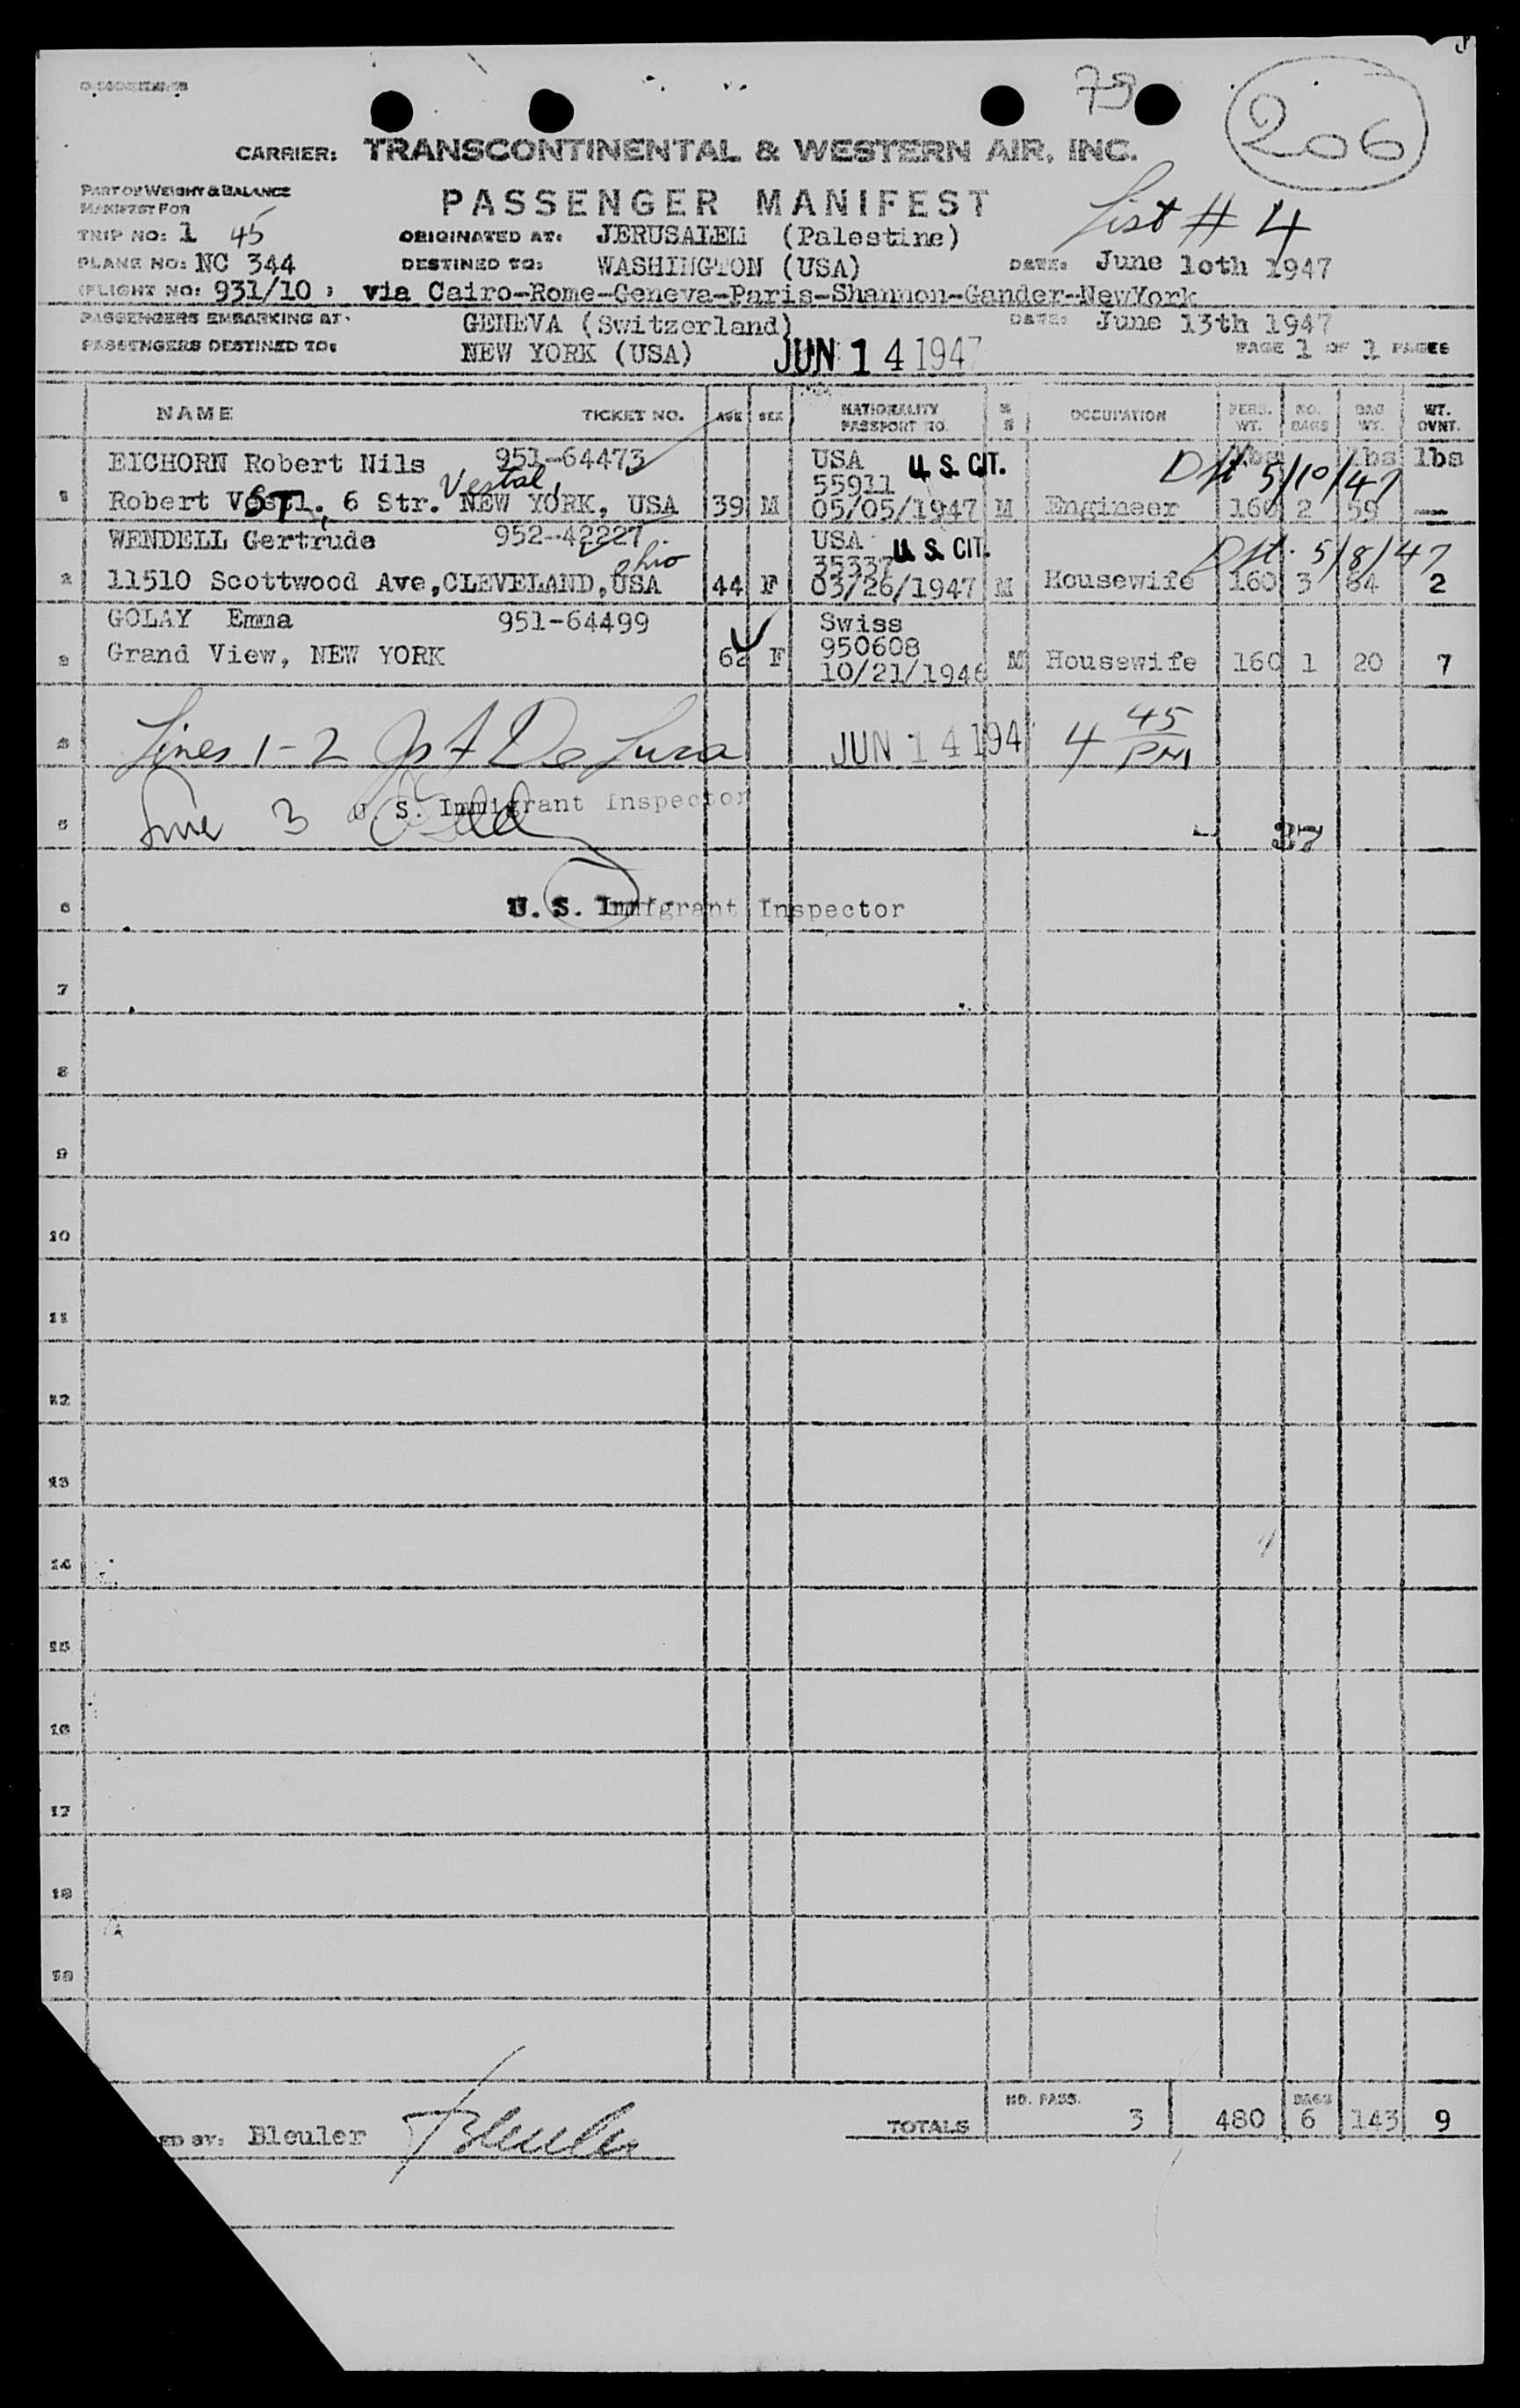 79
206
CARRIER: TRANSCONTINENTAL & WESTERN AIR, INC.
PART OF WEIGHT & BALANCE
MANIFEST FOR
PASSENGER MANIFEST
List # 4
TRIP NO: 1 45
ORIGINATED AT: JERUSALEM (Palestine)
PLANE NO: NC 344
DESTINED TO: WASHINGTON (USA)
DATE: June 10th 1947
FLIGHT NO: 931/10, via Cairo-Rome-Geneva-Paris-Shannon-Gander-NewYork
PASSENGERS EMBARKING AT: GENEVA (Switzerland) DATE: June 13th 1947
PASSENGERS DESTINED TO: NEW YORK (USA) JUN 14 1947 PAGE 1 OF 1 PAGES
NAME TICKET NO. AGE SEX NATIONALITY PASSPORT NO. M S OCCUPATION PERS. WT. NO. BAGS BAG WT. WT. OVNT.
EICHORN Robert Nils 951-64473 USA U.S. CIT. lbs lbs lbs
Vestal, 55911 Dpt 5/10/47
1 Robert St., 6 Str. NEW YORK, USA 39 M 05/05/1947 M Engineer 160 2 59 --
WENDELL Gertrude 952-42227 USA U.S. CIT.
Ohio 35337 Dpt. 5/8/47
2 11510 Scottwood Ave,CLEVELAND,USA 44 F 03/26/1947 M Housewife 160 3 64 2
GOLAY Emma 951-64499 Swiss
950608
3 Grand View, NEW YORK 62 F 10/21/1946 M Housewife 160 1 20 7
Lines 1-2 De Luca JUN 14 194 4 45 PM
U. S. Immigrant Inspector
5 Line 3
37
6 U. S. Immigrant Inspector
7
8
9
10
11
12
13
14
15
16
17
18
19
NO. PASS. BAGS
ED BY: Bleuler Bleuler TOTALS 3 480 6 143 9